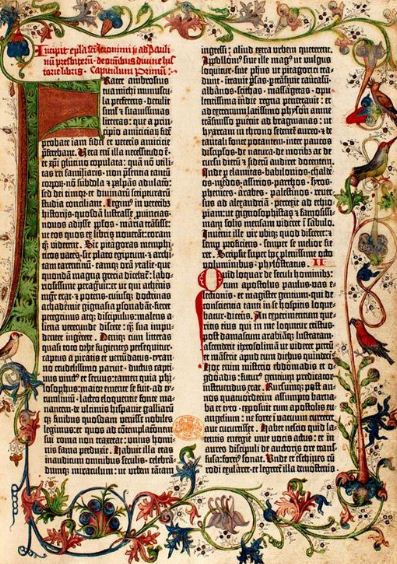 Incipit epl'a sc̄i ieronimi p̄ ad Pauli
nū presbitep̄: de om̄ibus diuine his
torie libris. Capitulum Primū:
Frater ambrosius
tua michi munuscu-
la perferens · detulit
simul et suauissimas
litteras: que a princi-
pio amiciciarū fidē
probate iam fidei et veteris amicicie
Uera em̄ illa necessitudo ē
et xp̄i glutino copulata: quā nō utili-
tas rei familiaris · non p̄sentia tantū
corporū · nō subdola et palpās adulatō:
sed dei timor · et diuinarū scripturarū
studia conciliant. Legimus in veterib3
historijs · quosdā lustrasse ꝓuincias ·
nouos adijsse ppl'os · maria trāsisse ·
ut eos quos ex libris nouerāt: corā q3
viderēt. Sic pitagoras memphiti-
cos vates · sic plato egiptum · et archi-
tam tarentinū · eamq3 orā ytalie · que
quondā magna grecia dicebat̄: labo-
riosissime peragrauit: ut qui athenis
mgr̄ erat · et potens · cuiusq3 doctrinas
achademie gignasia p̄sonabāt: fieret
peregrinus atq3 discipulus: malens a-
liena verecunde discere: q̄ sua impu-
denter ingerere. Deniq3 cum litteras
quasi toto orbe fugientes persequitur ·
captus a piratis et venūdatus: tiran-
no crudelissimo paruit · ductus capti-
uus vinct9 et seruus: tamen quia phi-
losophus: maior emente se fuit.
ad ti-
tum liuiū · lacteo eloquentie fonte ma-
nantem · de ultimis hispanie galliarū
q3 finibus quosdam venisse nobiles
legimus: et quos ad cōtemplationem
sui roma non traxerat: unius homi-
nis fama perduxit. Habuit illa etas
inauditum omnibus seculis · celebrā-
dumq3 miraculum: ut urbem tātam
ingressi: aliud extra urbem quererent.
Apollonius siue ille mag9 ut vulgus
loquitur · siue phūs ut pitagorici tra-
dunt · intrauit persas · ptrāsiuit caucasū ·
albanos · scithas · massagetas · opu-
lentissima indie regna penetrauit: et
ad extremum latissimo physon amne
trāsmisso puenit ad bragmanas: ut
hyarcam in throno sedentē aureo · et de
tantali fonte potantem · inter paucos
discipulos · de natura · de moribus ac de
cursu dierū et siderū audiret docentem.
Inde ꝑ elamitas · babilonios · chalde-
os · medos · assirios · parthos · syros ·
phenices · arabes · palestinos · reuer-
sus ad alexandriā: perrexit ad ethio-
piam: ut gignosophistas et famosissi-
mam solis mensam videret ī sabulo.
Inuenit ille uir ubiq3 quod disceret: et
semp proficiens · semper se melior fie-
ret. Scripsit super hoc plenissime octo
voluminibus: phylostratus. II
Quid loquar de seculi hominib3:
cum apostolus paulus · vas e-
lectionis · et magister gentium · qui de
conscientia tanti in se hospitis loque-
batur · dicens. An experimentum que-
ritis eius qui in me loquitur cristus ·
post damascum arabiāq3 lustratam:
ascenderit iherosolimā ut videret petrū
et māserit apud eum diebus quindeci.
Hoc enim misterio ebdomadis et o-
gdoadis: futur9 gentium predicator
instruendus erat. Rursumq3 post an-
nos quatuordecim assumpto barna-
ba et tyto · exposuit cum apostolis eu-
angelium: ne forte ī vacuum curreret
aut cucurrisset. Habet nescio quid la-
tentis energie viue vocis actus: et in
aures discipuli de auctoris ore trans-
fusa: forti9 sonat. Unde et eschines cū
rodi exularet · et legeret̄ illa demostenis